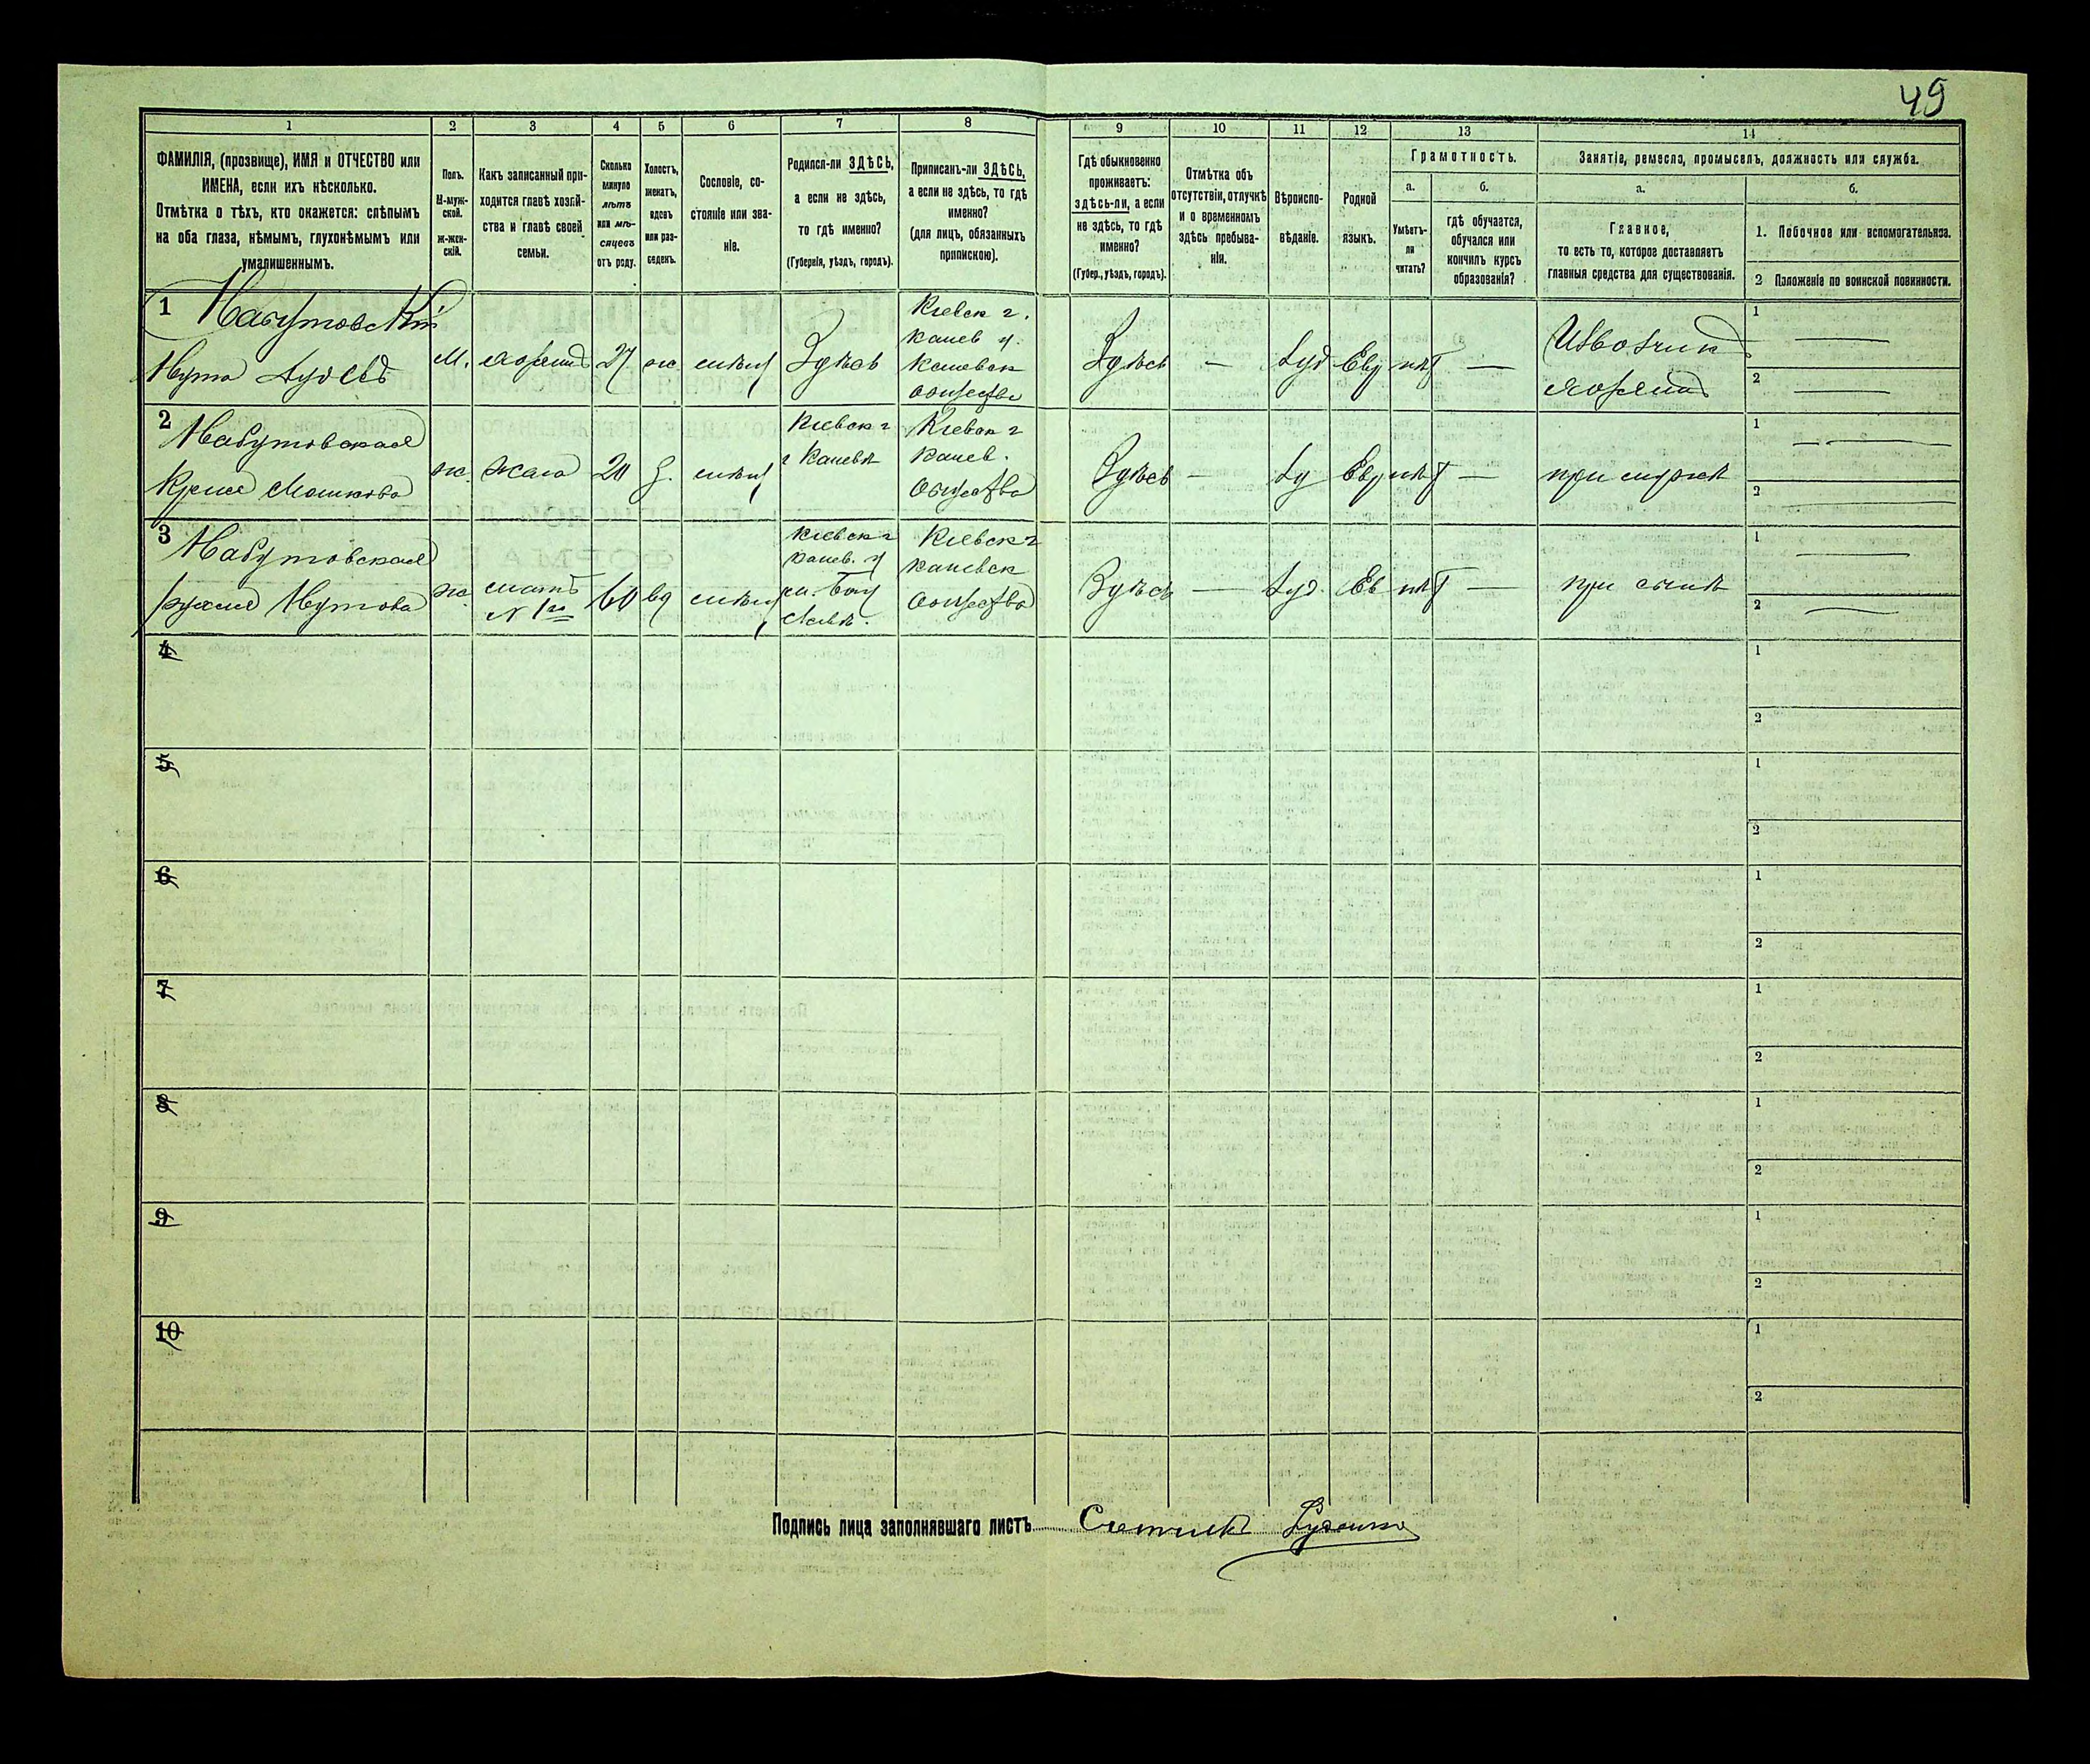 49
1 2 3 4 5 6 7 8 9 10 11 12 13 14
ФАМИЛІЯ, (прозвище), ИМЯ и ОТЧЕСТВО или
ИМЕНА, если ихъ нѣсколько.
Отмѣтка о тѣхъ, кто окажется: слѣпымъ
на оба глаза, нѣмымъ, глухонѣмымъ или
умалишеннымъ.
Полъ.
М-муж-
ской.
Ж-жен-
скій.
Какъ записанный при-
ходится главѣ хозяй-
ства и главѣ своей
семьи.
Сколько
минуло
лѣтъ
или мѣ-
сяцевъ
отъ роду.
Холостъ,
женатъ,
вдовъ
или раз-
веденъ.
Сословіе, со-
стояніе или зва-
ніе.
Родился-ли ЗДѢСЬ,
а если не здѣсь,
то гдѣ именно?
(Губернія, уѣздъ, городъ).
Приписанъ-ли ЗДѢСЬ,
а если не здѣсь, то гдѣ
именно?
(для лицъ, обязанныхъ
припискою).
Гдѣ обыкновенно
проживаетъ:
здѣсь-ли, а если
не здѣсь, то гдѣ
именно?
(Губер., уѣздъ, городъ).
Отмѣтка объ
отсутствіи, отлучкѣ
и о временномъ
здѣсь пребыва-
ніи.
Вѣроиспо-
вѣданіе.
Родной
языкъ.
Грамотность.
а.
Умѣетъ-
ли
читать?
б.
гдѣ обучается,
обучался или
кончилъ курсъ
образованія?
Занятіе, ремесло, промыселъ, должность или служба.
а.
Главное,
то есть то, которое доставляетъ
главныя средства для существованія.
б.
1. Побочное или вспомогательное.
2 Положеніе по воинской повинности.
1 Набутовскій
Нута
м. хозяинъ 27 ж Здѣсь
Кіевск г.
Канев у.
обществ
Здѣсь — Іуд Евр нѣт —
Извощик
хозяинъ
1 —
2 —
2 Набутовская
Мошкова
ж. жена 20 з.
Кіевск г
г Каневѣ
Кіевск г
Канев.
общества
Здѣсь — Іу Евр нѣт — при мужѣ
1 —
2 —
3 Набутовская
Нутова
ж мать
N 1го
60 вд
Кіевск г
Канев. у
Кіевск г
Каневск
общества
Здѣсь — Іуд. Ев нѣт — при сынѣ
1 —
2 —
4
1
2
5
1
2
6
1
2
7
1
2
8
1
2
9
1
2
10
1
2
Подпись лица заполнявшаго листъ Счетчикъ